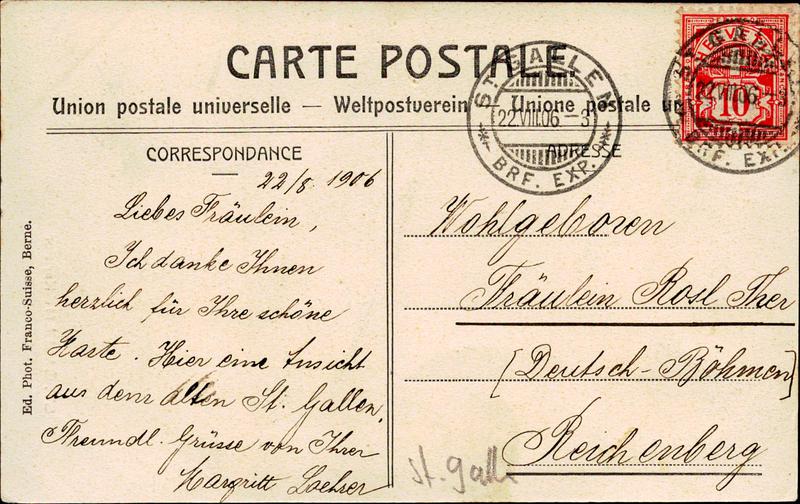 CARTE POSTALE.
Union postale universelle — Weltpostverein — Unione postale un
ST. GALLEN
22.VIII.06 – 3
BRF. EXP.
HELVETIA
10
22.VIII.06
BRF. EXP.
CORRESPONDANCE
ADRESSE
22/8. 1906
Liebes Fräulein,
Ich danke Ihnen
herzlich für Ihre schöne
Karte. Hier eine Ansicht
aus dem alten St. Gallen.
Freundl. Grüsse von Ihrer
Margritt
Wohlgeboren
Fräulein Rosl Ther
[Deutsch-Böhmen]
Reichenberg
St. Gall
Ed. Phot. Franco-Suisse, Berne.